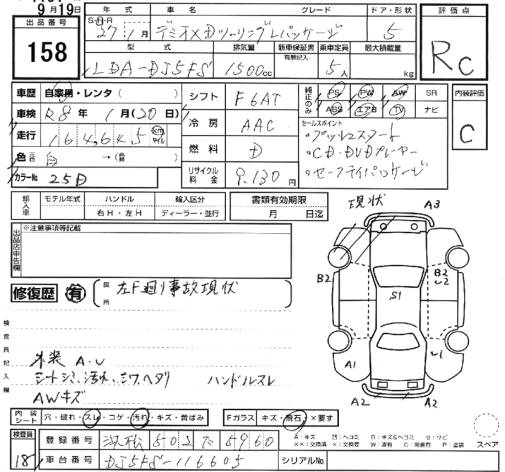 9月19日
出品番号 158
年式 車名 グレード ドア・形状
S・H・R 27/1月 デミオXDツーリングLパッケージ 5
型式 排気量 新車保証書 有無記入 乗車定員 最大積載量
LDA-DJ5FS 1500cc 5人 kg
評価点
RC
内装評価
C
車歴 自家用・レンタ( )
車検 R8年1月(20日)
走行 164,645 km マイル
色 白 →( 色)
カラーNo. 25D
シフト F6AT
冷房 AAC
燃料 D
リサイクル料金 9.130円
純正のみ PS PW SW SR
ABS エアB TV ナビ
セールスポイント
・プッシュスタート
・CD・DVDプレーヤー
・セーフティパッケージ
輸入車 モデル年式 ハンドル 輸入区分
右H・左H ディーラー・並行
書類有効期限
月 日迄
出品店申告欄
※注意事項等記載
修復歴 有 箇所 左F廻り事故現状
検査員記入欄
外装 A.U
シートシミ、汚れ、シワ、ヘタリ ハンドルスレ
AWキズ
現状
A3
B2
B2
U2
S1
A1
U1
A2
A2
内装シート 穴・破れ・スレ・コゲ・汚れ・キズ・黄ばみ
Fガラス キズ・飛石・×要す
検査員 18
登録番号 浜松 503 て 5960
車台番号 DJ5FS-116605
シリアルNo.
スペア